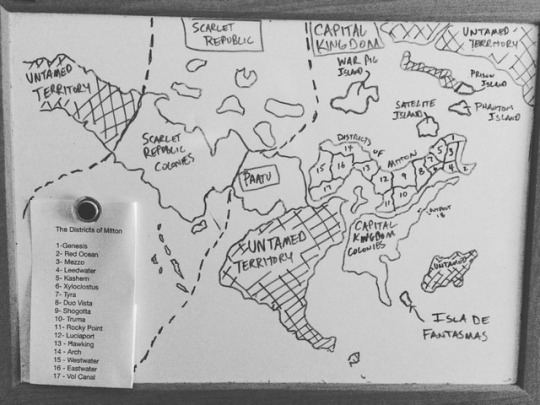 SCARLET
REPUBLIC
CAPITAL
KINGDOM
UNTAMED
TERRITORY
WAR PIG
ISLAND
PRISON
ISLAND
PHANTOM
ISLAND
SATELITE
ISLAND
UNTAMED
TERRITORY
SCARLET
REPUBLIC
COLONIES
PAATU
DISTRICTS OF MITTON
14
15 16 13
17
12 9 8 7 5 3 1
10 4 2
11
UNTAMED
TERRITORY
CAPITAL
KINGDOM
COLONIES
18
UNTAMED
ISLA DE
FANTASMAS
The Districts of Mitton
1-Genesis
2- Red Ocean
3- Mezzo
4- Leedwater
5- Kashem
6- Xyloclostus
7- Tyra
8- Duo Vista
9- Shogotta
10- Truma
11- Rocky Point
12- Luciaport
13 - Hawking
14 - Arch
15 - Westwater
16 - Eastwater
17 - Vol Canal